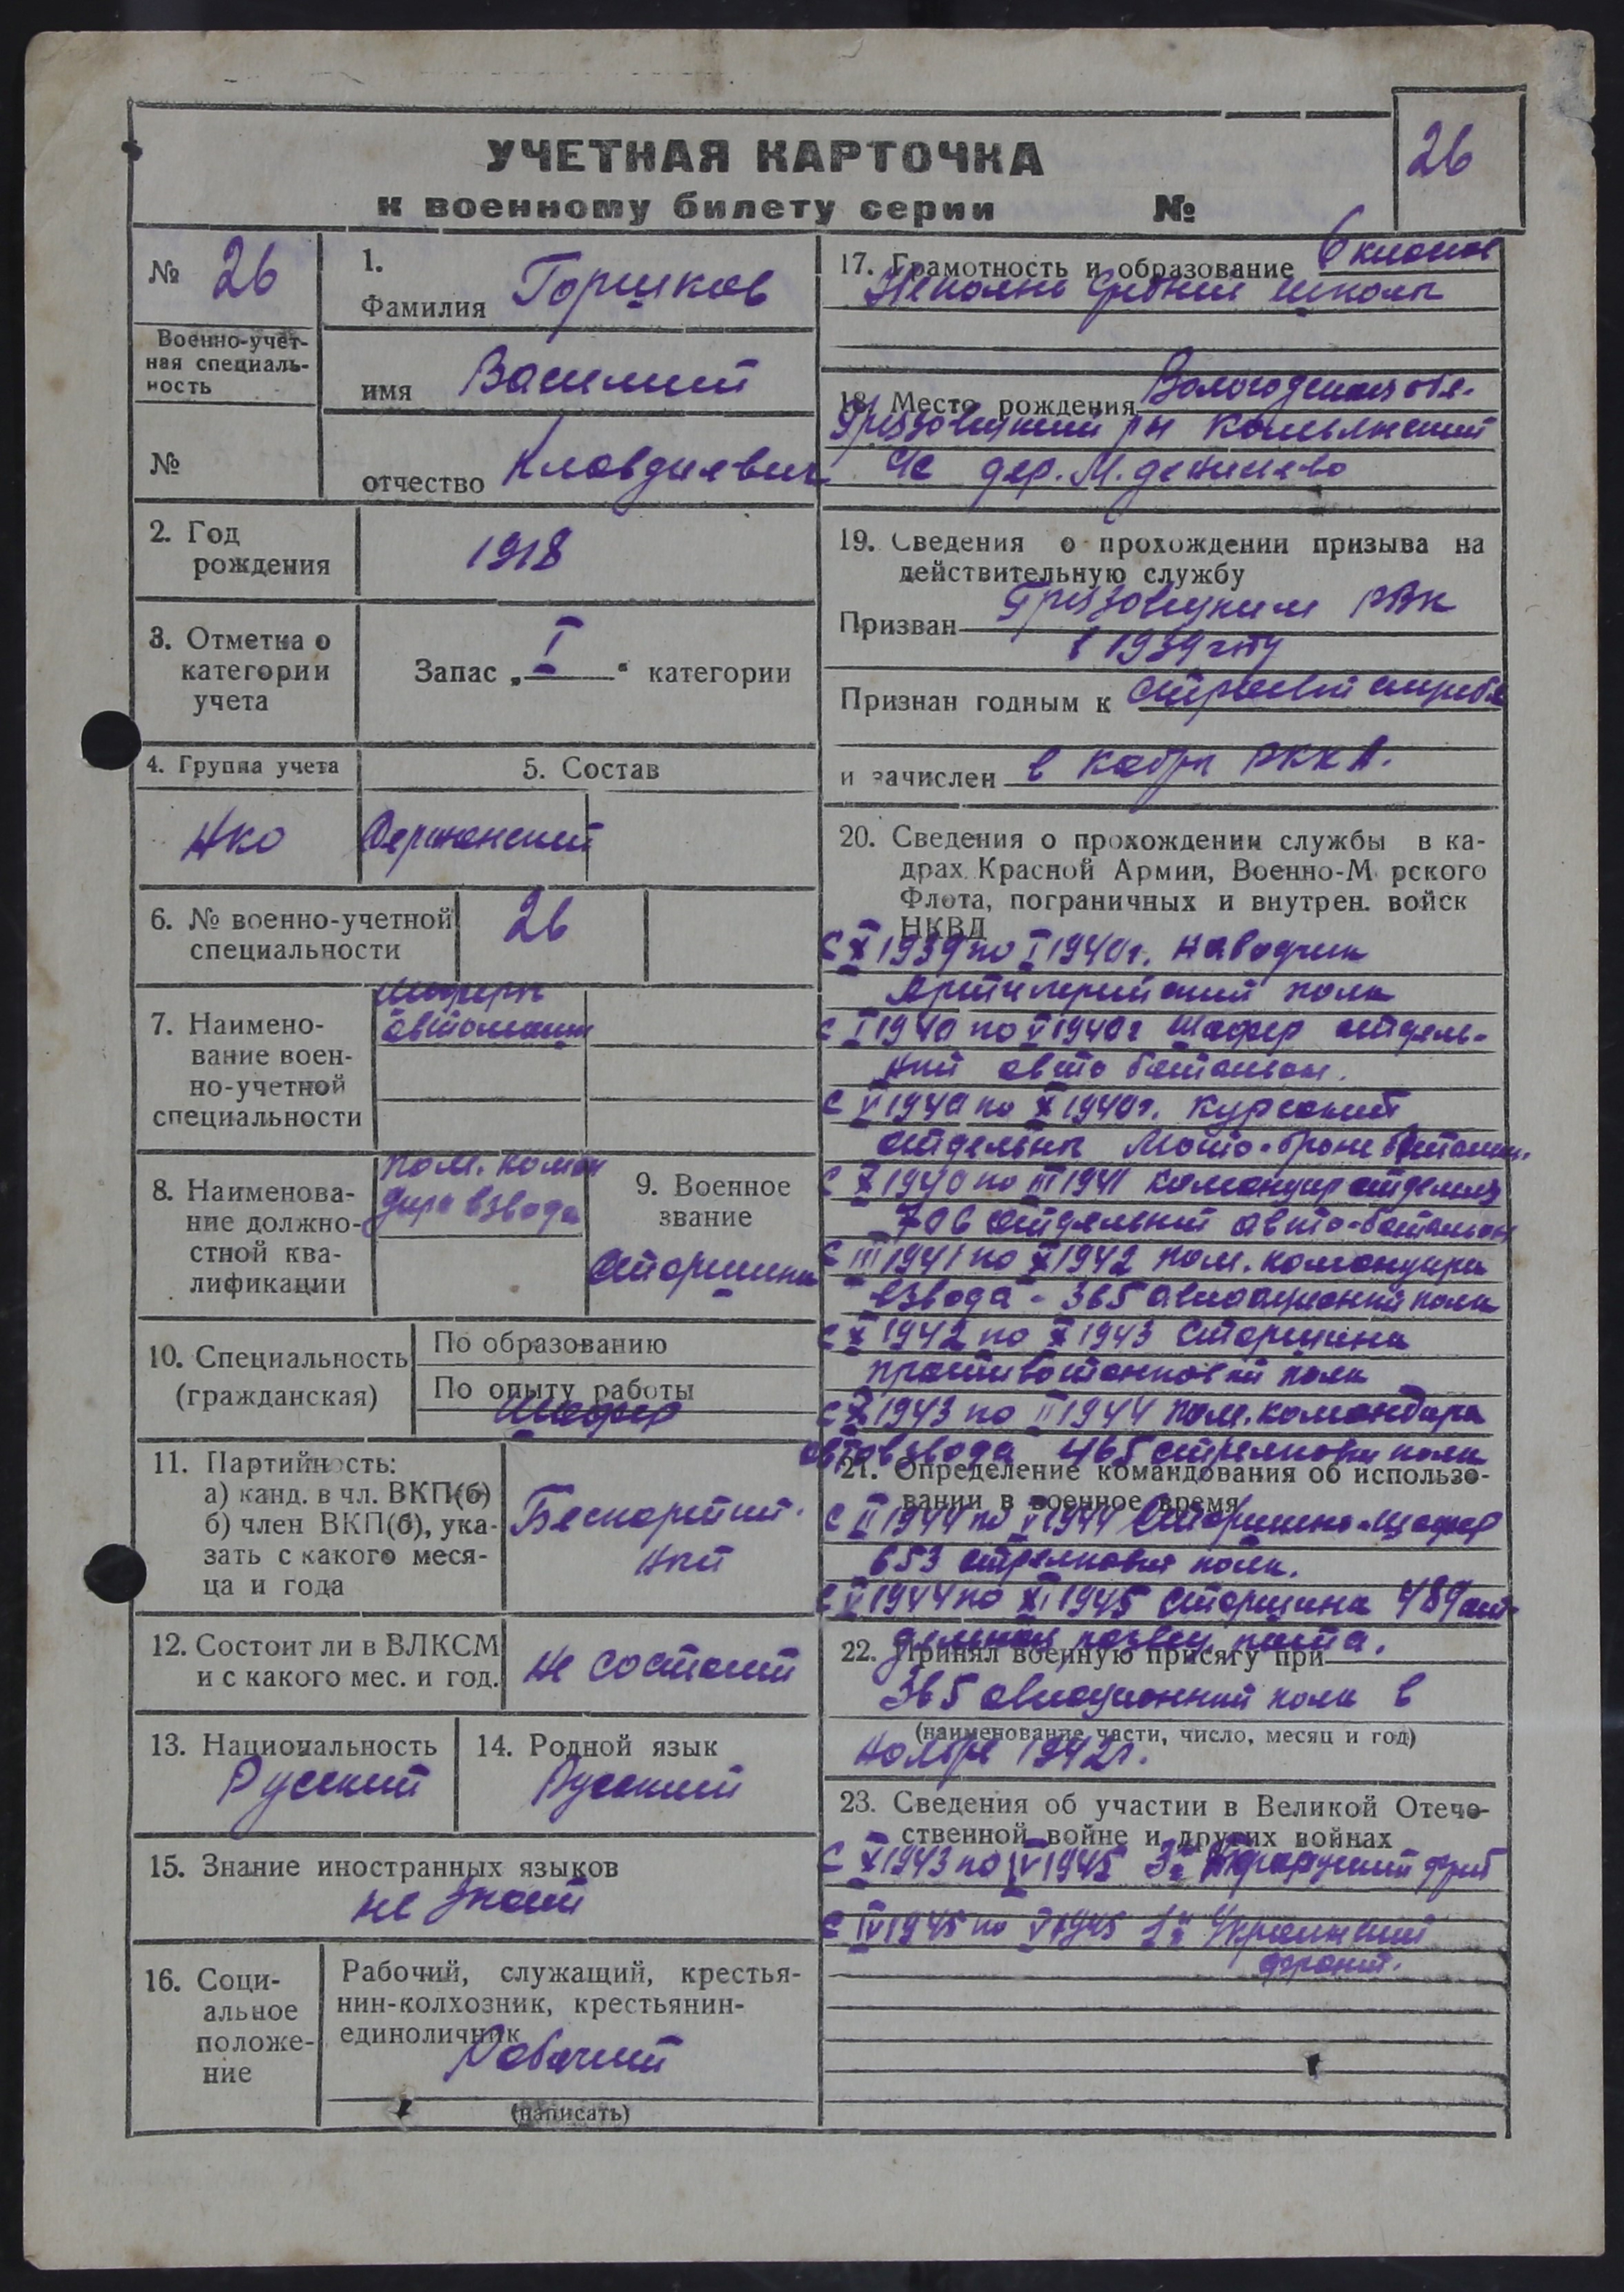 26
УЧЕТНАЯ КАРТОЧКА
к военному билету серии №
№ 26
Военно-учет-
ная специаль-
ность
№
1.
Фамилия Горшков
имя Василий
отчество Клавдиевич
2. Год
рождения
1918
3. Отметка о
категории
учета
Запас „ I “ категории
4. Группа учета
5. Состав
НКО
Сержанский
6. № военно-учетной
специальности
26
7. Наимено-
вание воен-
но-учетной
специальности
Шоферы
автомашин
8. Наименова-
ние должно-
стной ква-
лификации
пом. коман
дира взвода
9. Военное
звание
Старшина
10. Специальность
(гражданская)
По образованию
По опыту работы
Шофер
11. Партийность:
а) канд. в чл. ВКП(б)
б) член ВКП(б), ука-
зать с какого меся-
ца и года
Беспартий-
ный
12. Состоит ли в ВЛКСМ
и с какого мес. и год.
не состоит
13. Национальность
Русский
14. Родной язык
Русский
15. Знание иностранных языков
не знает
16. Соци-
альное
положе-
ние
Рабочий, служащий, крестья-
нин-колхозник, крестьянин-
единоличник
Рабочий
(написать)
17. Грамотность и образование 6 класов
Неполн средней школы
18. Место рождения Вологодская обл.
Грязовецкий рн
с/с дер. М.
19. Сведения о прохождении призыва на
действительную службу
Призван Грязовецким РВК
в 1939 году
Признан годным к строевой службе
и зачислен в кадры РККА.
20. Сведения о прохождении службы в ка-
драх Красной Армии, Военно-М рского
Флота, пограничных и внутрен. войск
НКВД
С X 1939 по I 1940 г. наводчик
Артилерийский полк
с I 1940 по V 1940 г шофер отдель-
ный авто батальон.
с V 1940 по X 1940 г. курсант
отдельны мото-броне батальон.
с X 1940 по III 1941 командир отделия
706 отдельный авто-батальон
с III 1941 по X 1942 пом. командира
взвода - 365 авиационный полк
с X 1942 по X 1943 старшина
противотанковый полк
с X 1943 по II 1944 пом. командира
автовзвода 465 стрелковый полк
21. Определение командования об использо-
вании в военное время
с II 1944 по V 1944 Старшина-шофер
653 стрелковый полк.
с V 1944 по XI 1945 старшина 489 от-
дельная развед. рота.
22. Принял военную присягу при
365 авиационный полк в
(наименование части, число, месяц и год)
ноябре 1942 г.
23. Сведения об участии в Великой Отече-
ственной войне и других войнах
С X 1943 по IV 1945 3й
с IV 1945 по V 1945 1й Украинский
фронт.